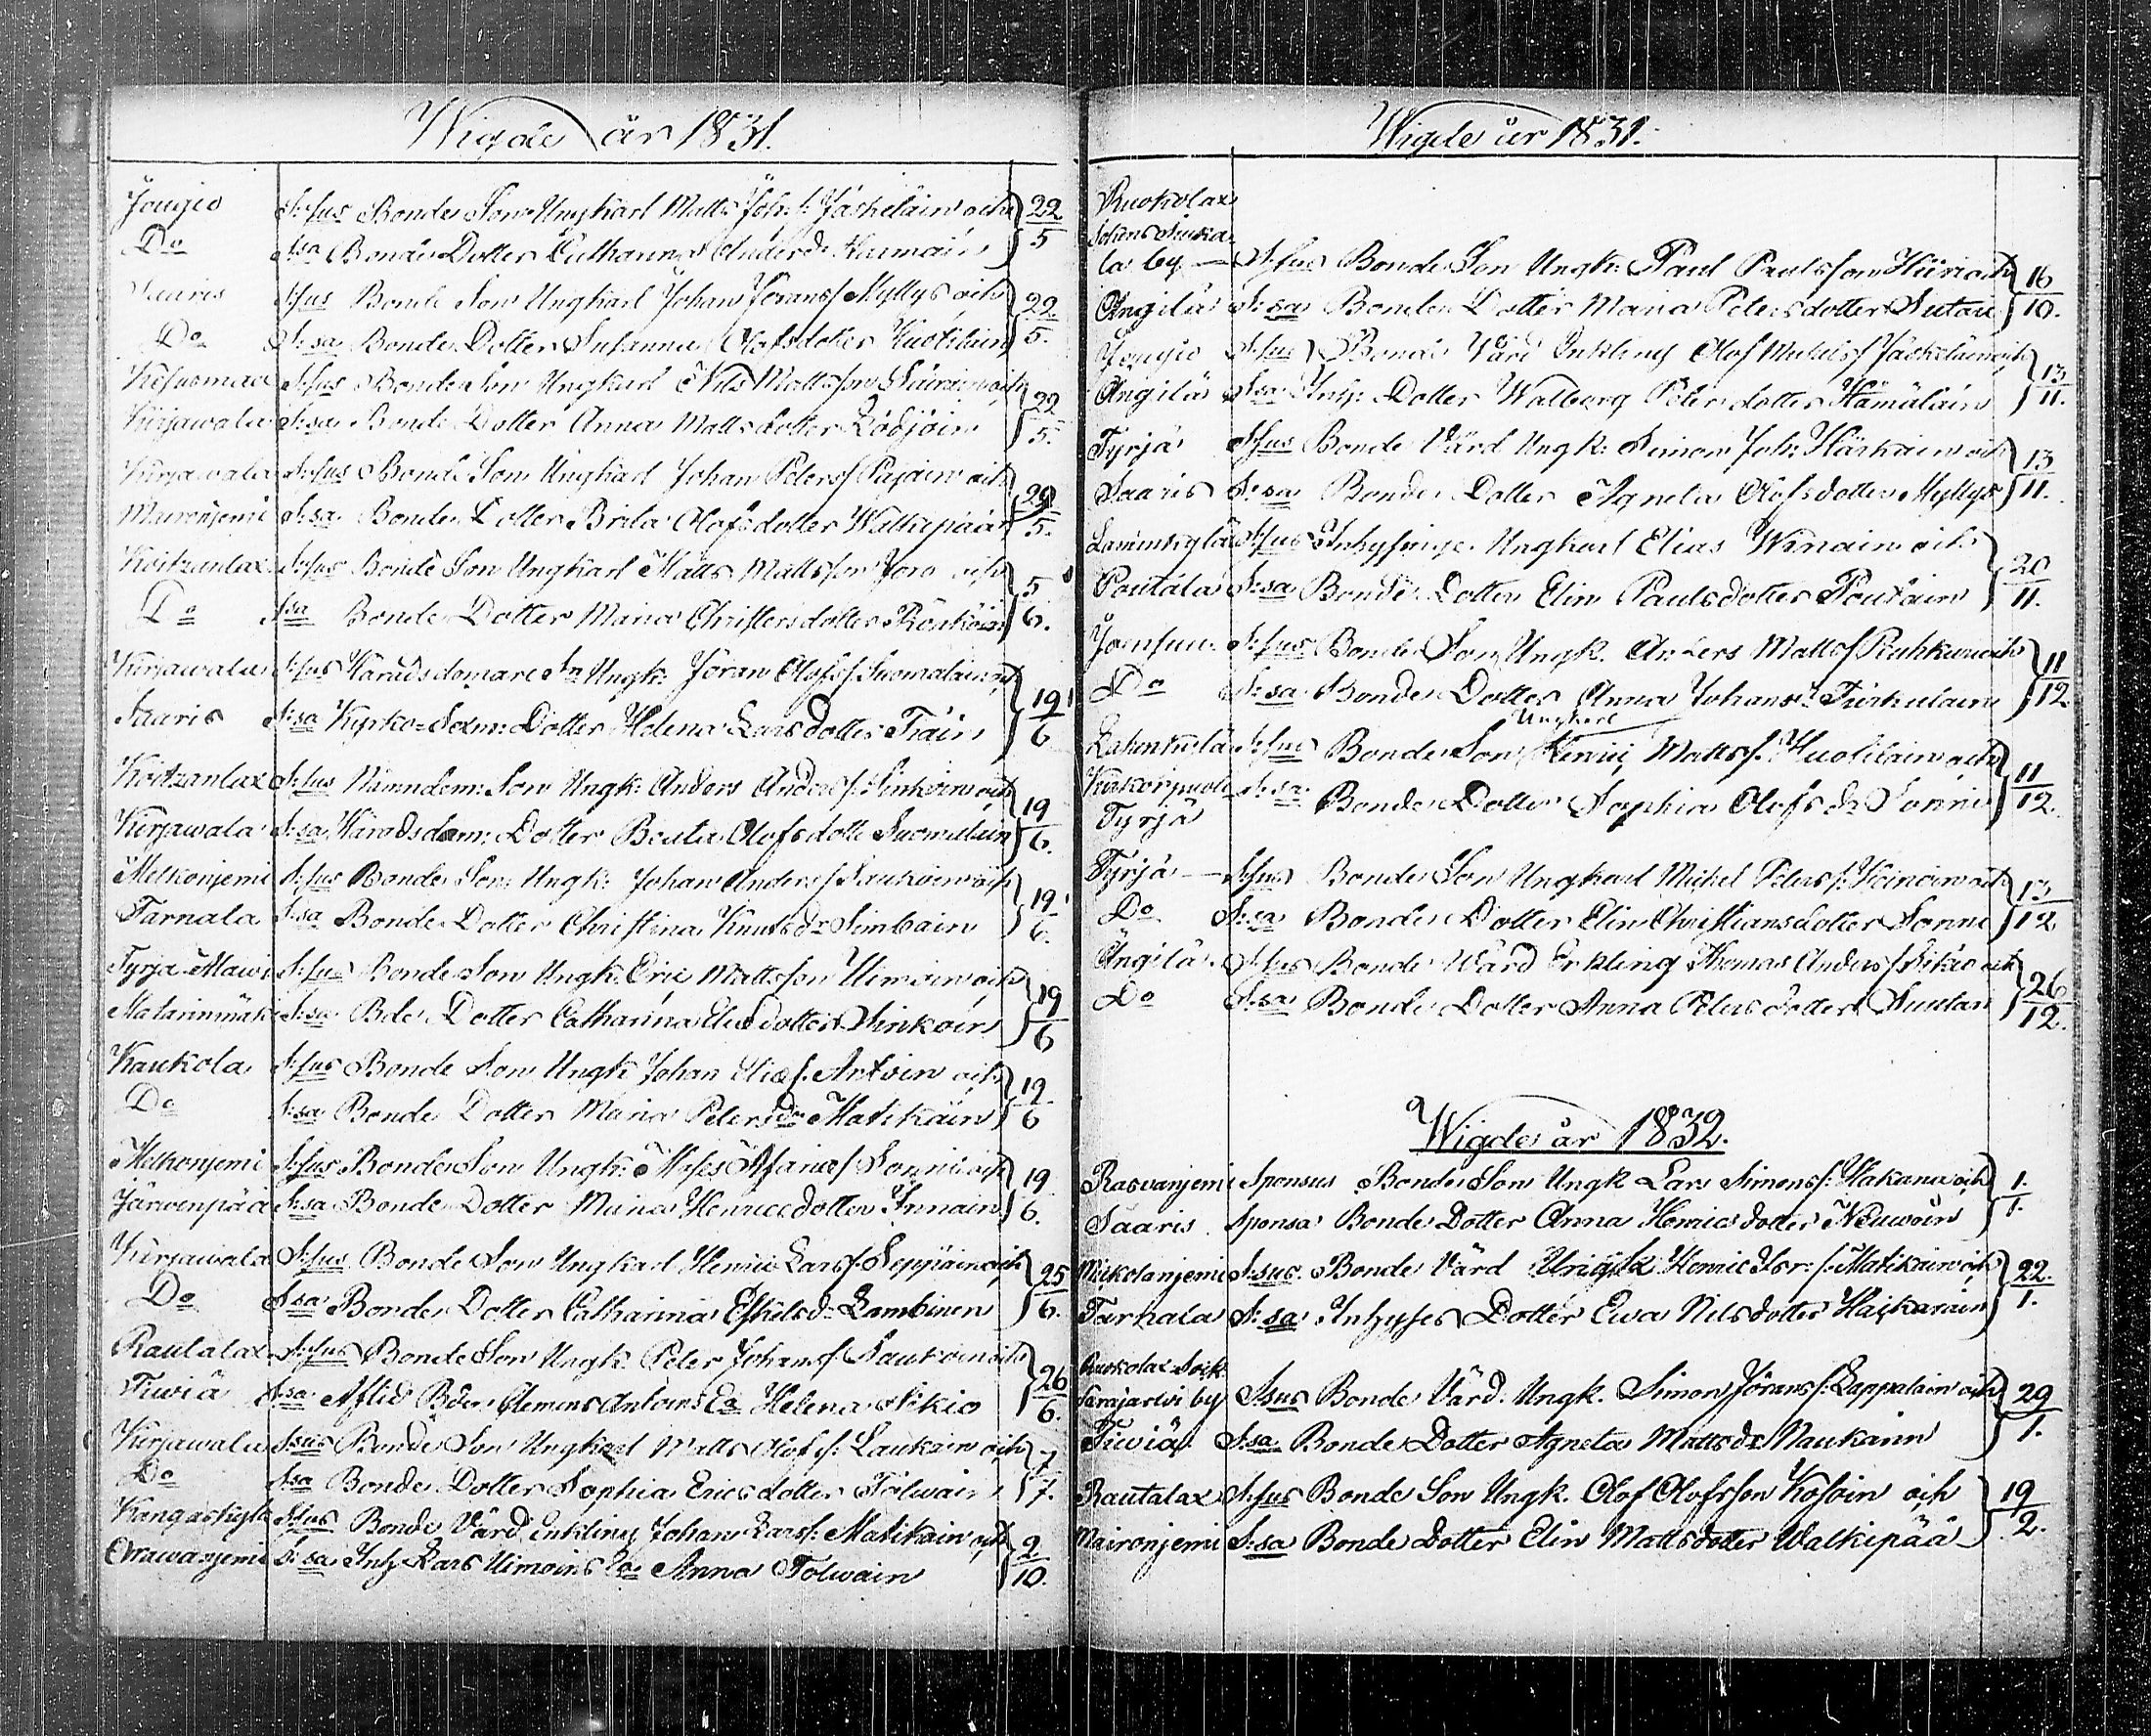 Wigde år 1831.
Jougio S:sus Bonde Son Ungkarl Matts Joh:s: Jäskeläin och } 22
Do S:sa Bonde Dotter Catharina Andersd:r } 5
Saaris S:sus Bonde Son Ungkarl Johan Jörans/ Myllys och } 22
Do S:sa Bonde Dotter Susanna Olofsdotter Huotilain } 5.
Kesusmae S:sus Bonde Son Ungkarl Nils Mattsson och } 22
Kirjawala S:sa Bonde Dotter Anna Mattsdotter } 5.
Kirjawala S:sus Bonde Son Ungkarl Johan Peters/ Pajain och } 29
Maironjemi S:sa Bonde Dotter Brita Olofsdotter Walkipää } 5.
Koitzanlax S:sus Bonde Son Ungkarl Matts Mattsson Joro och } 5
Do S:sa Bonde Dotter Maria Christersdotter } 6.
Kirjawala S:sus Häradsdomare Sn Ungk: Jöran Olofs/ Suomalain } 19
Saaris S:sa Kyrko- Dotter Helena Larsdotter Träin } 6
Koitzanlax S:sus Nämndem: Son Ungk: Anders Anders/: Sinkoin och } 19
Kirjawala S:sa Häradsdom: Dotter Beata Olofsdott Suomalain } 6.
Melkonjemi S:sus Bonde Son Ungk: Johan Anders/ Laukain och } 19
Tarnala S:sa Bonde Dotter Christina Knutsdr Simbain } 6.
Tyrjä S:sus Bonde Son Ungk. Eric Mattsson Uimoin och } 19
Matarinmäki S:sa Bde Dotter Catharina Eliedotter Sinkoin } 6
Kaukola S:sus Bonde Son Ungk Johan Elias/. Antoin och } 19
Do S:sa Bonde Dotter Maria Petersdr Matikain } 6
Melkonjemi S:sus Bonde Son Ungk: Sonni och } 19
Järwenpää S:sa Bonde Dotter Maria Henricsdotter Innain } 6.
Kirjawala S:sus Bonde Son Ungkarl Henric Lars/ Seppäin och } 25
Do S:sa Bonde Dotter Catharina Eskilsd: Lambinen } 6.
Rautalax S:sus Bonde Son Ungk. Peter Johans/ Laukain och } 26
Tiwiä S:sa Aflid Bden Clemens Antoins Ea Helena Sikio } 6.
Kirjawala S:sus Bonde Son Ungkarl Matts Olofs/: Laukain och } 7
Do S:sa Bonde Dotter Sophia Ericsdotter Tolwain } 7.
Kangaskylä S:sus Bonde Värd Enkling Johan Lars/: Matikain och } 2
Orawanjemi S:sa Inh Lars Uimoins Ea Anna Tolwain } 10.
Wigde år 1831.
Ruokolax
Sokens
la by — S:sus Bonde Son Ungk: Paul Paulsson och } 16
Ängilä S:sa Bonden Dotter Maria Petersdotter Sutar } 10.
Jougio S:sus Bonde Värd Enkling Olof Jäskeläin och } 13
Ängilä S:sa Inh: Dotter Walborg Petersdotter Hämäläin } 11.
Tyrjä S:sus Bonde Värd Ungk: Simon Joh: Härkäin och } 13
Saaris S:sa Bonde Dotter Agneta Olofsdotter Myllys } 11.
S:sus Inhysinge Ungkarl Elias och } 20
Poutala S:sa Bonde Dotter Elin Paulsdotter Poutain } 11.
S:sus Bonde Son Ungk. Anders Matts/ och } 11
Do S:sa Bonde Dotter Anna Johansd } 12
Ungkarl
S:sus Bonde Son Henric Matts/. Huotilain och } 11
S:sa. Bonde Dotter Sophia Olofsdr Sonni } 12.
Tyrjä
Tyrjä — S:sus Bonde Son Ungkarl Michel Peters/: Koinoin och } 13
Do S:sa Bonde Dotter Elin Christiansdotter Sonni } 12
Ängilä S:sus Bonde Wärd Enkling Thomas Anders/ Sikio och } 26
Do S:sa Bonde Dotter Anna Petersdotter Suutar } 12.
Wigde år 1832.
Rasvanjemi Sponsus Bonde Son Ungk Lars Simons/: Hakana och } 1.
Saaris Sponsa Bonde Dotter Anna Henricsdotter Neuwoin } 1.
Mickolanjemi S:sus. Bonde Värd Ungk Henric Isr:/: Matikain och } 22.
Tarnala S:sa Inhyses Dotter Ewa Nilsdotter Haikarain } 1.
Ruokolax Sock
Särajärwi by S:sus Bonde Värd. Ungk. Simon Jörans/: Lappalain och } 29
Tiwiä S:sa Bonde Dotter Agneta Mattsdr Naukarin } 1.
Rautalax S:sus Bonde Son Ungk. Olof Olofsson Kosoin och } 19
Maironjemi S:sa Bonde Dotter Elin Mattsdotter Walkipää } 2.